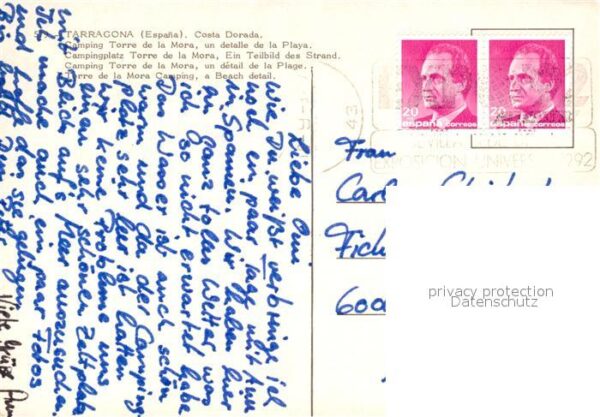 TARRAGONA (España). Costa Dorada.
Camping Torre de la Mora, un detalle de la Playa.
Campingplatz Torre de la Mora, Ein Teilbild des Strand.
Camping Torre de la Mora, un détail de la Plage.
Torre de la Mora Camping, a Beach detail.
20
españa correos
20
españa correos
EXPOSICION UNIVERSAL 1992
Liebe Omi
wie Du weißt verbringe ich
noch ein paar Tage mit Ann
in Spanien. Wir haben hier
ganz tolles Wetter was
ich so nicht erwartet habe
Das Wasser ist auch schön
warm und da der Camping-
platz sehr leer ist hatten
wir keine Probleme uns
einen sehr schönen Zeltplatz
mit Blick auf's Meer auszusuchen.
Ich mache auch ein paar Fotos
und hoffe das sie gelingen
Viele Grüße
Frau
6000
privacy protection
Datenschutz